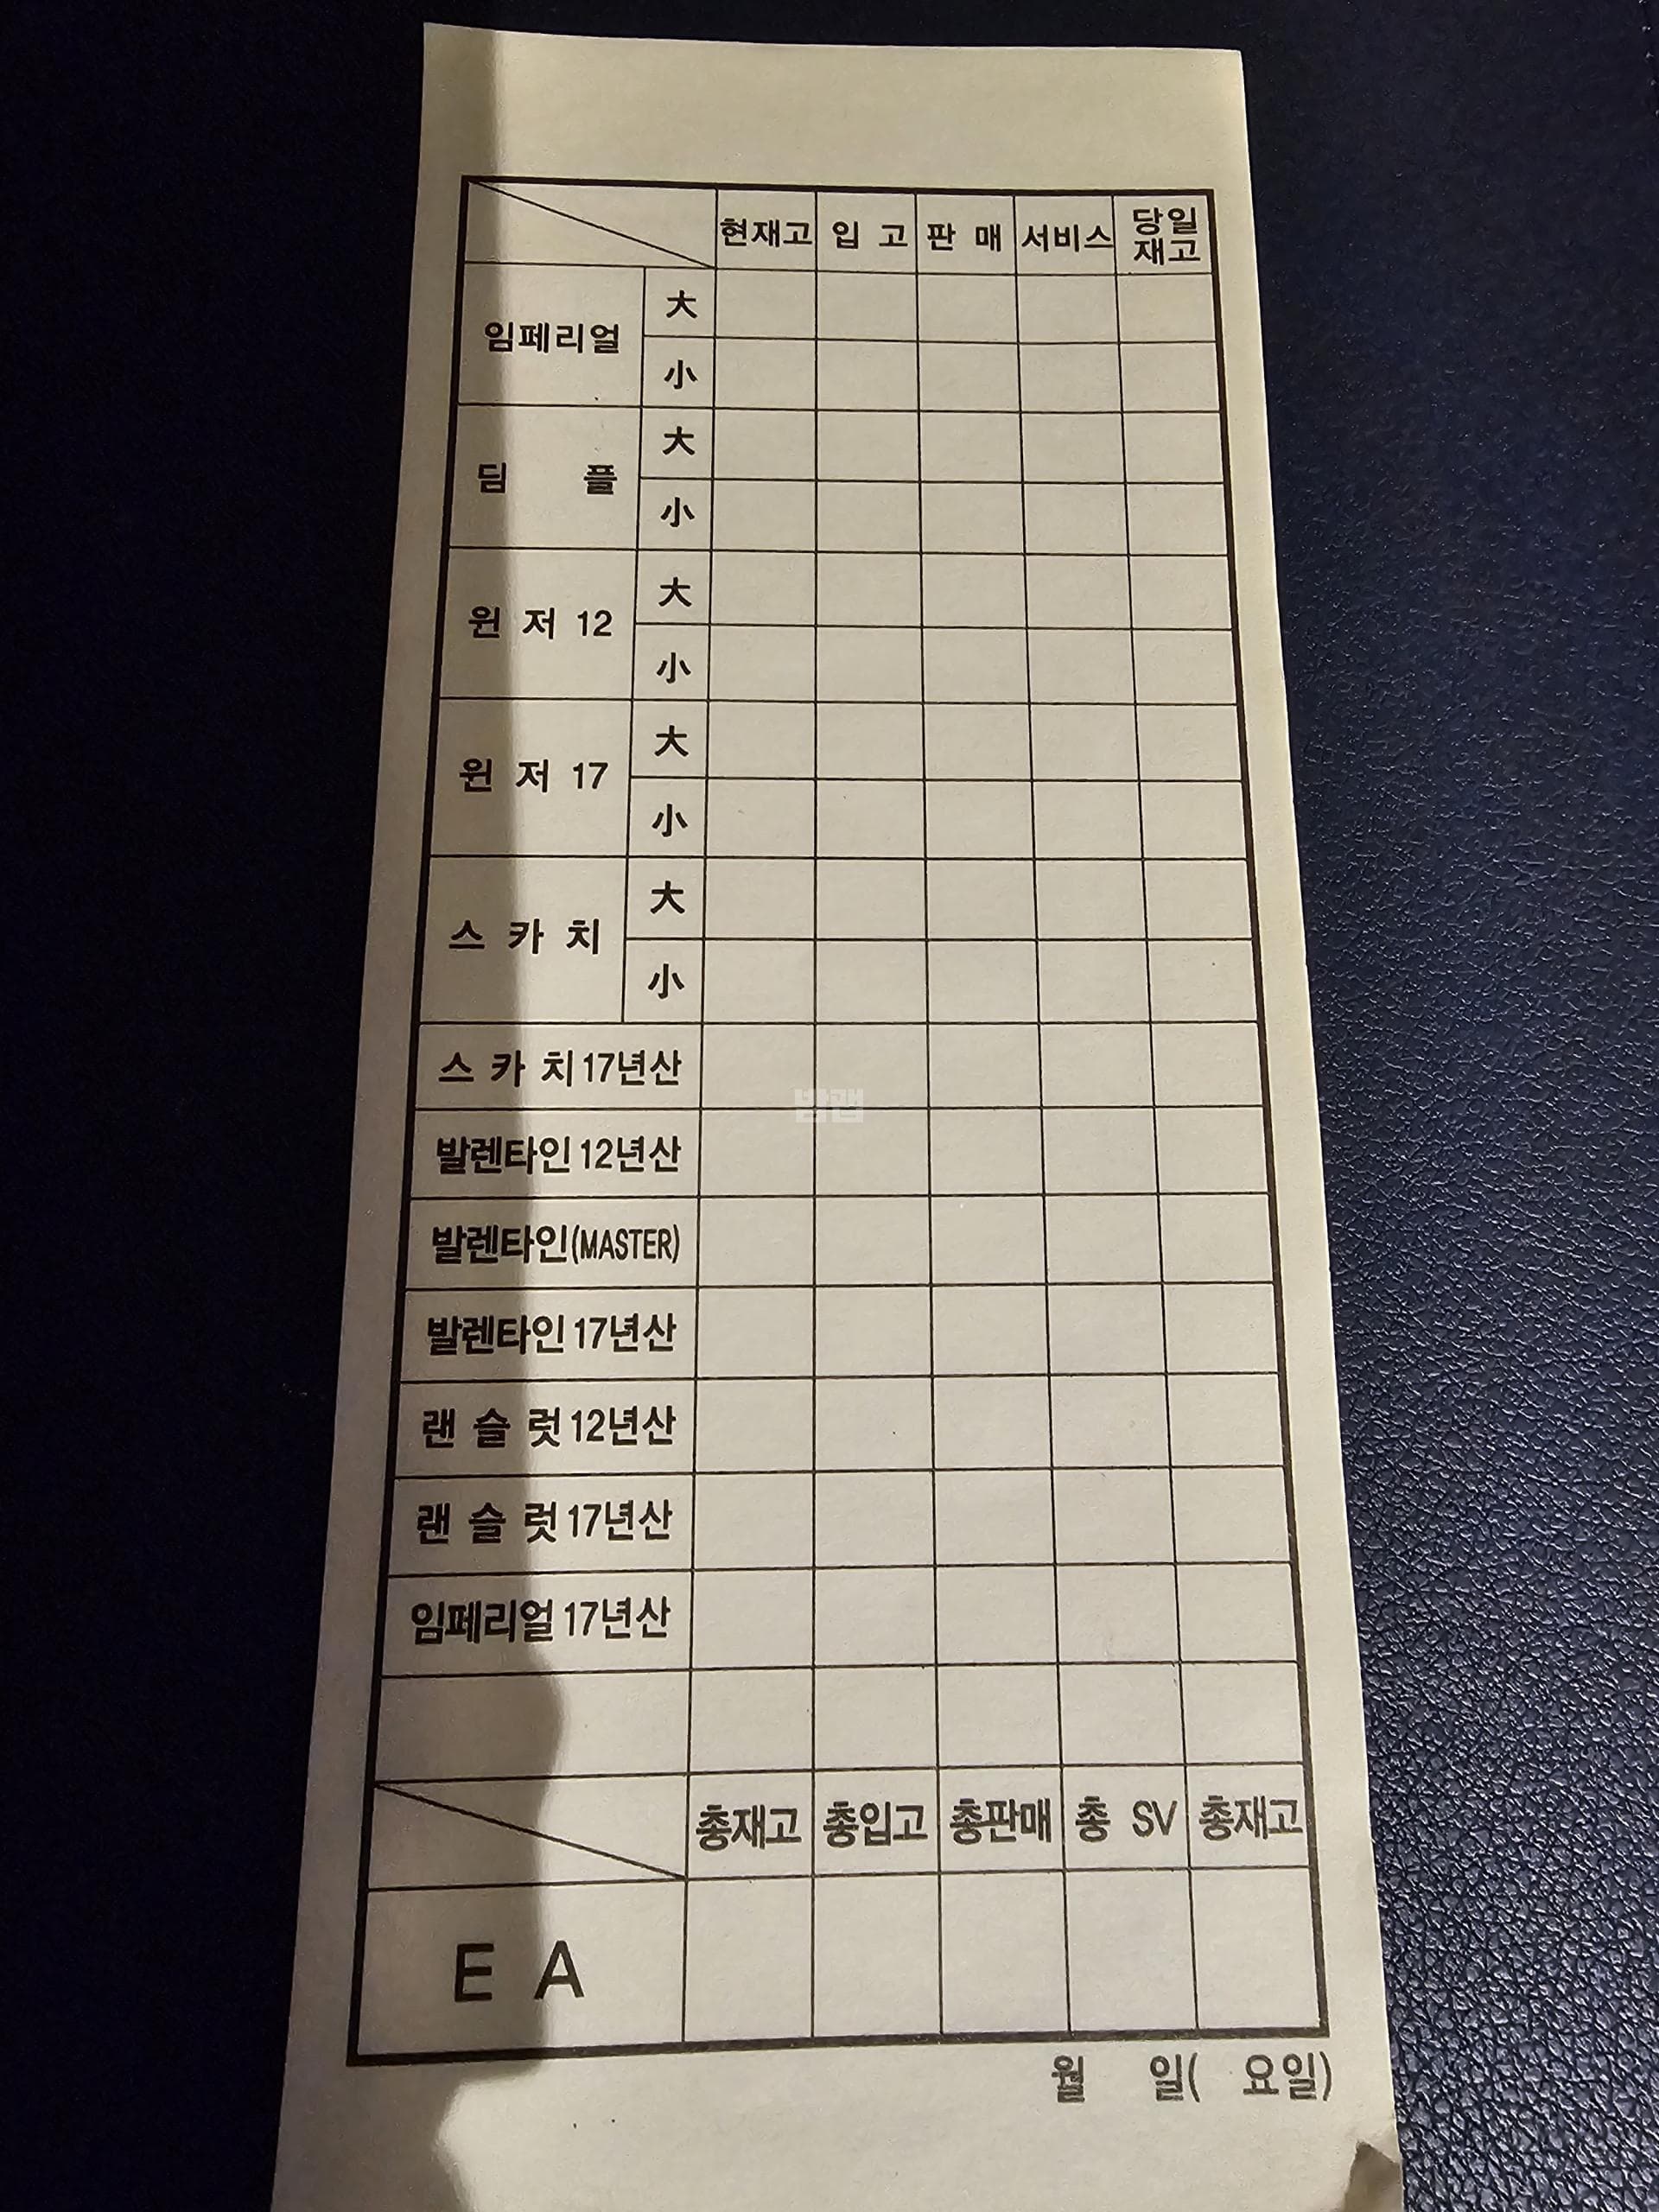 현재고 입 고 판 매 서비스 당일 재고
임페리얼 大
小
딤 플 大
小
윈 저 12 大
小
윈 저 17 大
小
스 카 치 大
小
스 카 치 17년산
발렌타인 12년산
발렌타인(MASTER)
발렌타인 17년산
랜 슬 럿 12년산
랜 슬 럿 17년산
임페리얼 17년산
총재고 총입고 총판매 총 SV 총재고
E A
월 일( 요일)